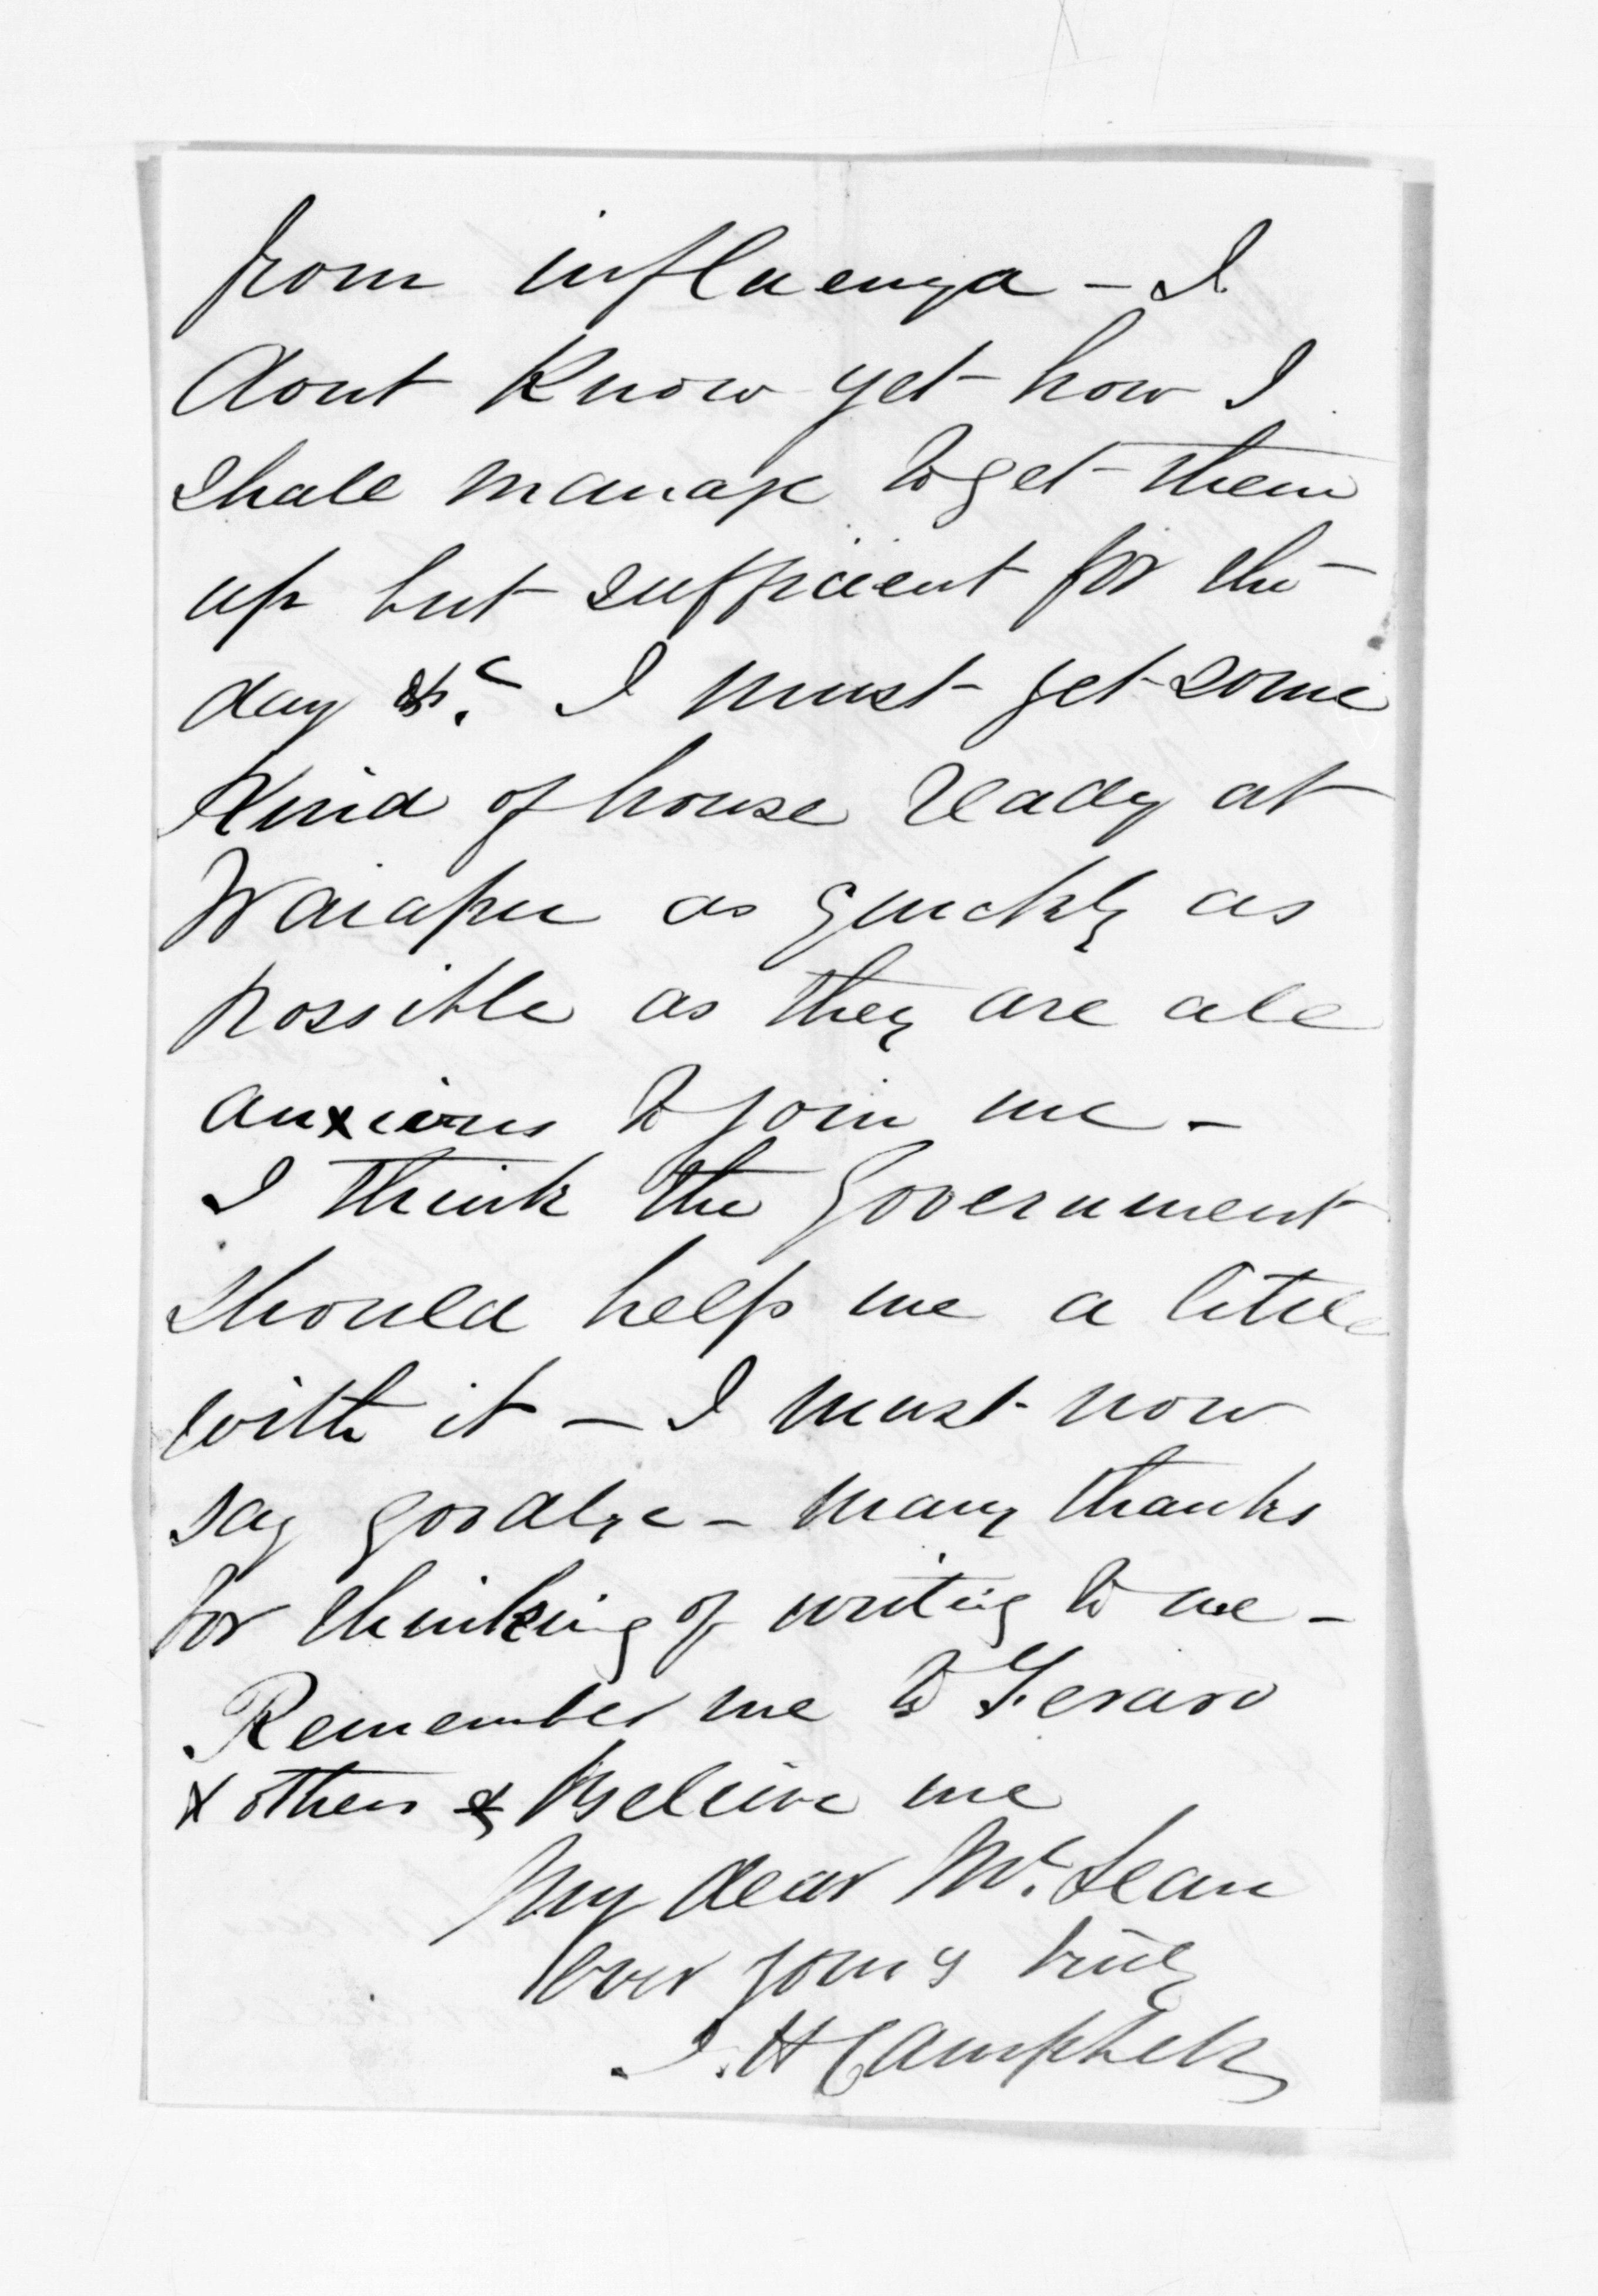 from influenza - I
dont know yet how I
shall manage to get them
up but sufficient for the
day &c. I must get some
kind of house ready at
Waiapu as quickly as
possible as they are all
anxious to join me -
I think the Government
should help me a little
with it - I must now
say goodbye - many thanks
for thinking of writing to me -
Remember me to
& others & Believe me
My dear McLean
Ever yours truly
J. H Campbell